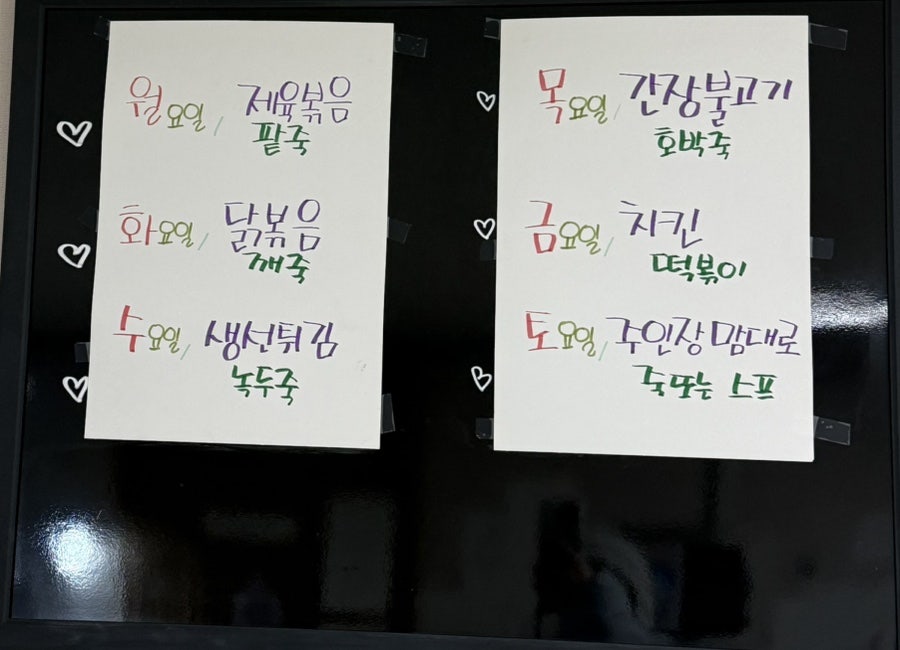 월요일/ 제육볶음
팥죽
화요일/ 닭볶음
깨죽
수요일/ 생선튀김
녹두죽
목요일/ 간장불고기
호박죽
금요일/ 치킨
떡볶이
토요일/ 주인장 맘대로
죽 또는 스프